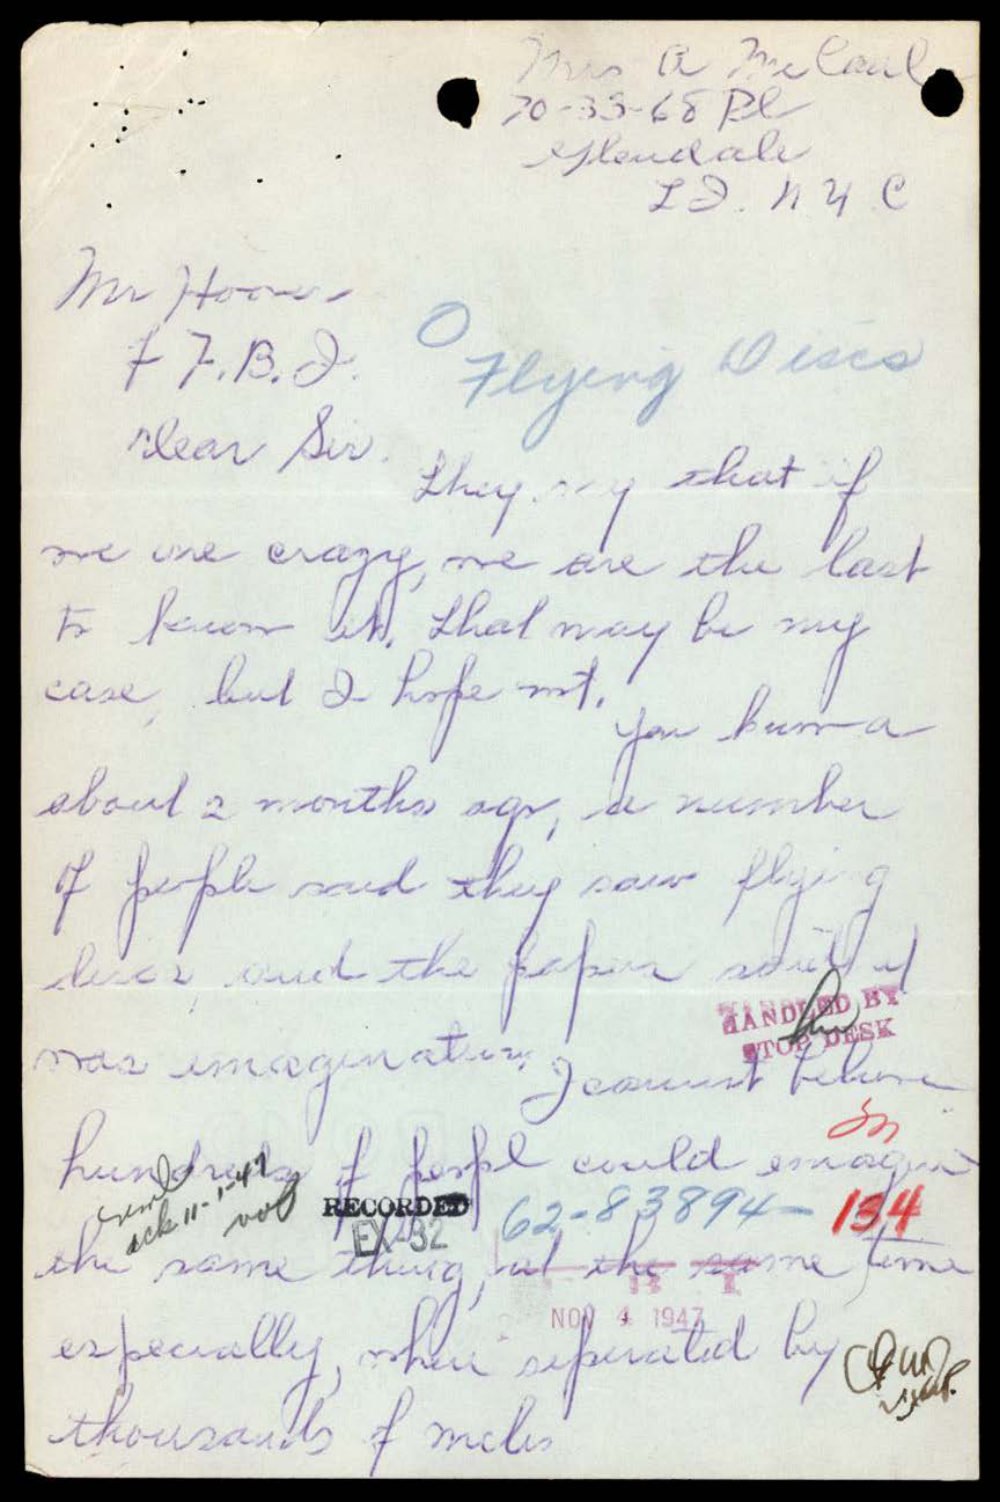 Mrs A McCaul
70-33-68 Pl
Glendale
L I. N Y C
Mr Hoover
of F.B.I.
Flying Discs
Dear Sir.
They say that if
we are crazy, we are the last
to know it. That may be my
case, but I hope not.
You know
about 2 months ago, a number
of people said they saw flying
discs, and the papers said it
HANDLED BY
STOP DESK
was imagination, I cannot believe
hundreds of peopl could imagin
ack 11-1-47
RECORDED
EX-32
62-83894-134
the same thing, at the same time
NOV 4 1947
especially, when seperated by
thousands of miles